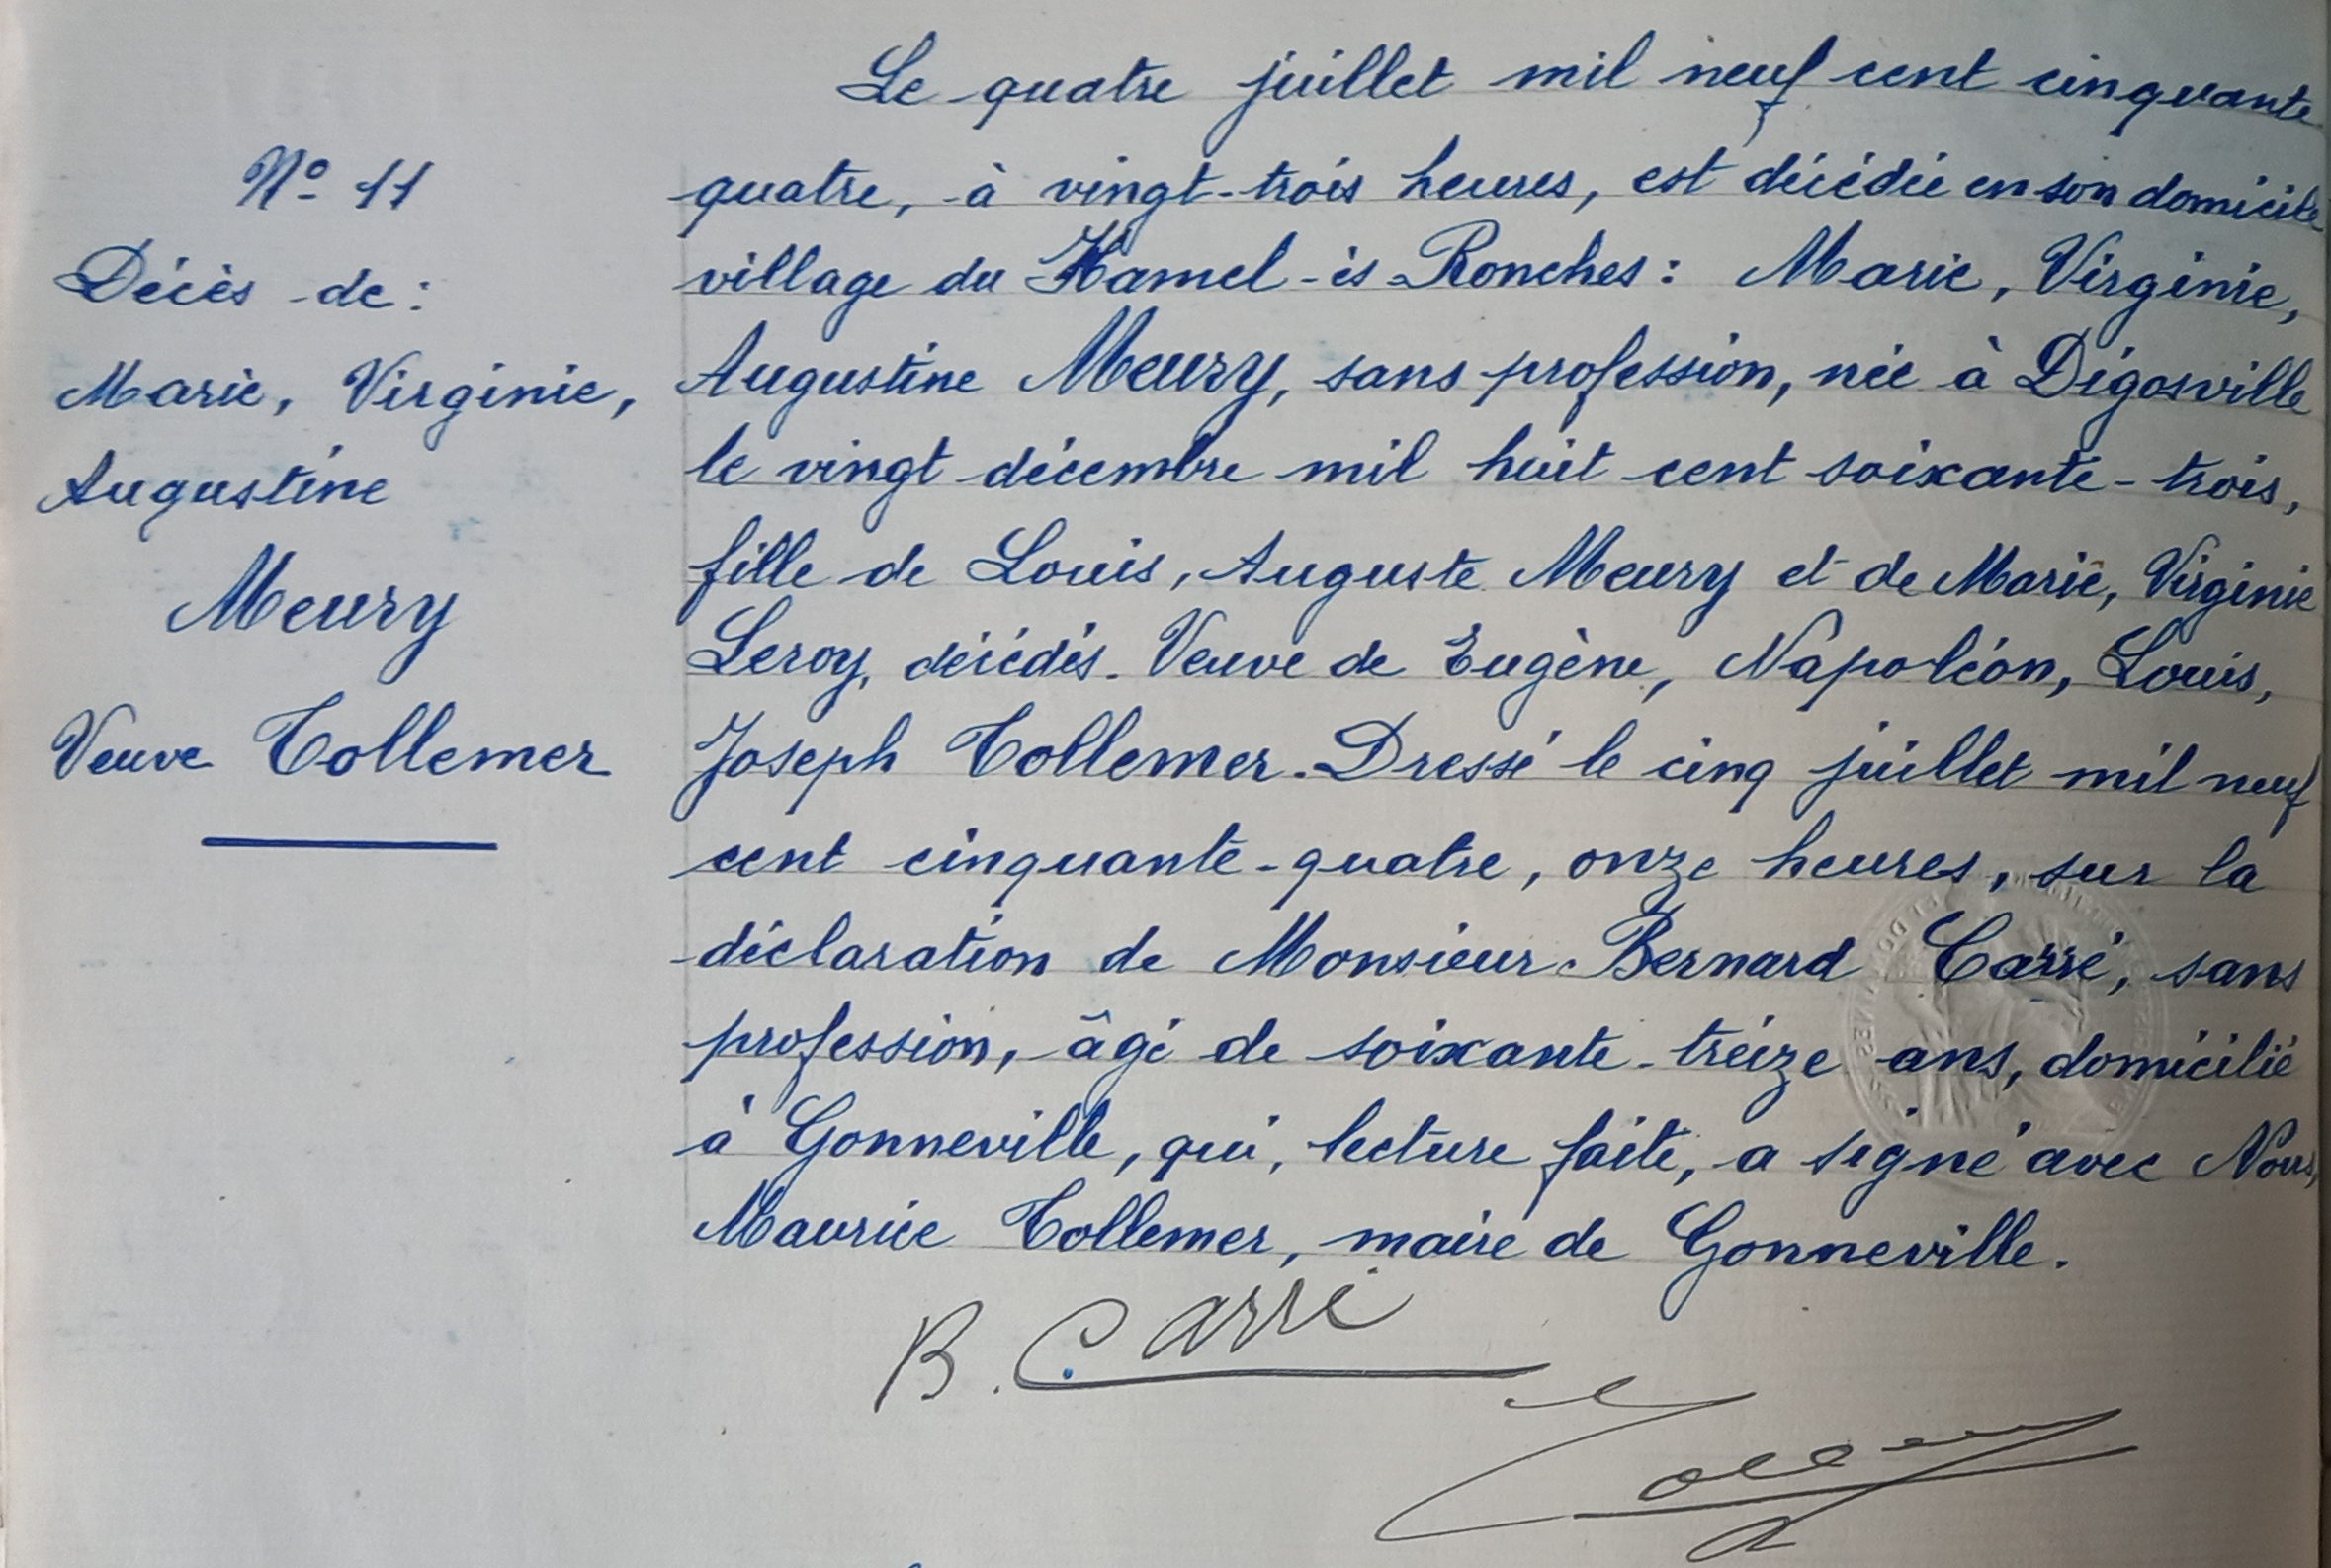 N° 11
Décès de :
Marie, Virginie,
Augustine
Meury
Veuve Tollemer
Le quatre juillet mil neuf cent cinquante
quatre, à vingt-trois heures, est décédée en son domicile
village du Hamel-ès Ronches : Marie, Virginie,
Augustine Meury, sans profession, née à Digosville
le vingt décembre mil huit cent soixante-trois,
fille de Louis, Auguste Meury et de Marie, Virginie
Leroy, décédés. Veuve de Eugène, Napoléon, Louis,
Joseph Tollemer. Dressé le cinq juillet mil neuf
cent cinquante-quatre, onze heures, sur la
déclaration de Monsieur Bernard Carré, sans
profession, âgé de soixante-treize ans, domicilié
à Gonneville, qui, lecture faite, a signé avec Nous,
Maurice Tollemer, maire de Gonneville.
B. Carré